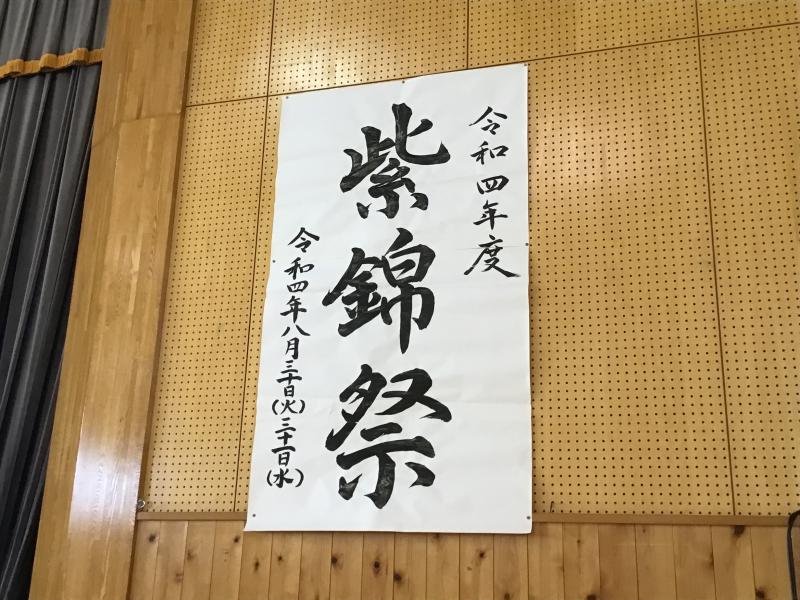 令和四年度
紫錦祭
令和四年八月三十日(火)三十一日(水)